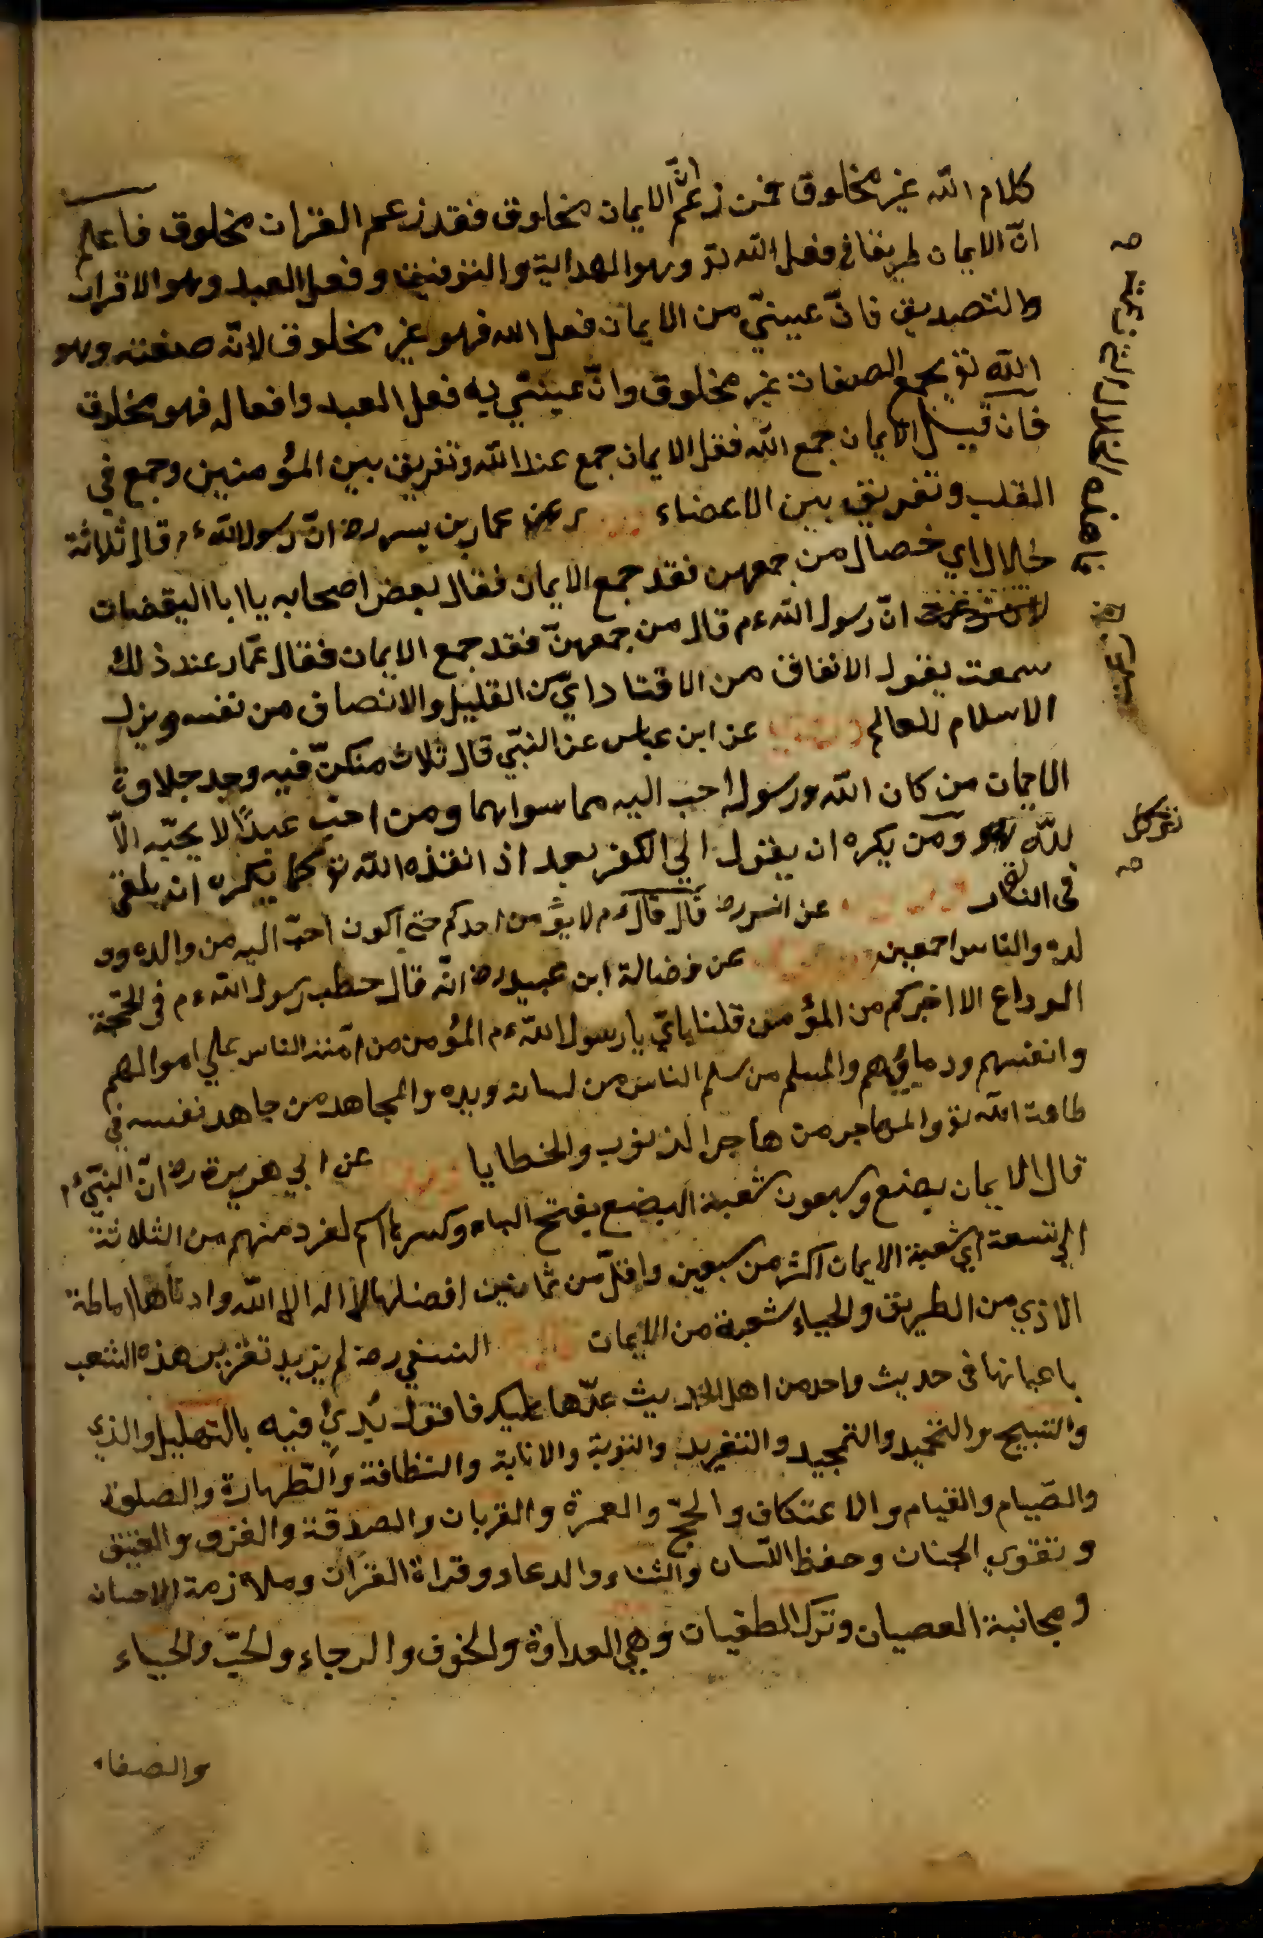 كلام الله غير مخلوق فمن زعم انّ الايمان مخلوق فقد زعم القران مخلوق فاعلم
انّ الايمان طريقان فعل الله تع وهو الهداية والتوفيق وفعل العبد وهو الاقرار
والتصديق فانّ عينيّ من الايمان فعل الله فهو غير مخلوق لانّه صفته وهو
الله تع بجميع الصفات غير مخلوق وانّ عينيّ به فعل العبد وافعاله فهو مخلوق
فان قيل الايمان جمع الله فقل الايمان جمع عند الله وتفريق بين المؤمنين وجمع في
القلب وتفريق بين الاعضاء وعن عمار بن يسر رض انّ رسول الله ءم قال ثلاثة
خلال اي خصال من جمعهن فقد جمع الايمان فقال بعض اصحابه يا ابا اليقضان
انّ رسول الله ءم قال من جمعهنّ فقد جمع الايمان فقال عمّار عند ذلك
سمعت يقول الانفاق من الاقتار اي من القليل والانصاف من نفسه وبزل
الاسلام للعالم عن ابن عباس عن النبّي قال ثلاث منكنّ فيه وجد حلاوة
الايمان من كان الله ورسوله احب اليه مما سواهما ومن احبّ عبدًا لا يحبّه الاّ
للّه ومن يكره ان يقول الي الكفر بعد اذ انقذه الله تع كما يكره ان يلقى
في النار عن انس رض قال قال ءم لا يؤمن احدكم حتى اكون احبّ اليه من والده وو
لده والناس اجمعين عن فضالة ابن عبيد رض انّه قال خطب رسول الله ءم في الحجّة
الوداع الا اخبركم من المؤمن قلنا بلي يا رسول الله ءم المؤمن من امنه الناس علي اموالهم
وانفسهم ودمايهم والمسلم من سلم الناس من لسانه ويده والمجاهد من جاهد نفسه في
طاعت الله تع والمهاجر من هاجر الذنوب والخطايا عن ابي هريرة رض انّ النبّي ءم
قال الايمان بضع وسبعون شعبة البضع بفتح الباء وكسرها اسم لفرد منهم من الثلاثة
الي تسعة اي شعبة الايمان اكثر من سبعين واقلّ من ثمانين افضلها لا اله الا الله وادناها اماطة
الاذي من الطريق والحياء شعبة من الايمان النسفي رح لم يزيد تقرير هذه الشعب
باعيانها في حديث واحد من اهل الحديث عدّها فاقول بُدئ فيه بالتهليل والذي
والتسبيح والتحميد والتمجيد والتفريد والتوبة والانابة والنظافة والطّهارة والصلوة
والصّيام والقيام والاعتكاف والحجّ والعمرة والقربان والصدقة والغزو والعتق
وتقوي الجنان وحفظ اللّسان والثناء والدعاء وقراة القران وملازمة الاحسان
ومجانبة العصيان وترك الطغيان وهي العداوة والخوف والرجاء والحبّ والحياء
والصفاء